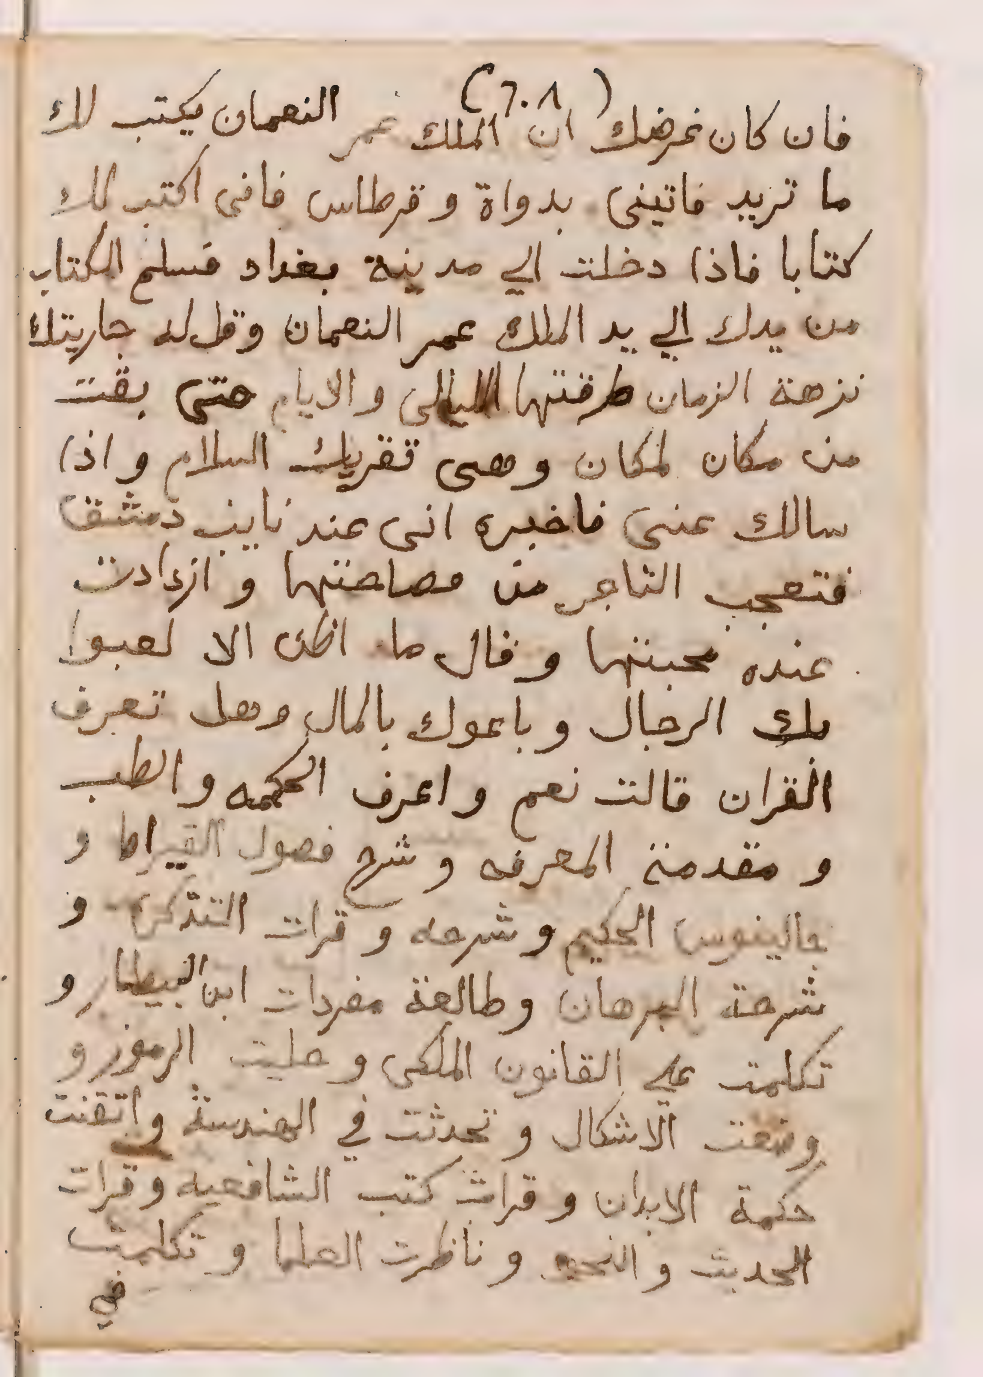 (٦٠٨)
فان كان غرضك ان الملك عمر النعمان يكتب لك
ما تريد فاتيني بدواة و قرطاس فانى اكتب لك
كتابا فاذا دخلت الي مدينة بغداد فسلم الكتاب
من يدك الي يد الملك عمر النعمان وقل له جاريتك
نزهة الزمان طرقتها الليالى و الايام حتى بقت
من مكان لمكان وهى تقريك السلام و اذا
سالك عنى فاخبره انى عند نايب دمشق
فتعجب التاجر من فصاحتها و ازدادت
عنده محبتها و قال ما اظن الا لعبوا
بك الرجال و باعوك بالمال وهل تعرف
القران قالت نعم و اعرف الحكمه و الطب
و مقدمة المعرفه و شرح فصول القيراط و
جالينوس الحكيم و شرحه و قرات التذكره و
شرحة البرهان وطالعة مفردات ابن البيطار و
تكلمت علي القانون الملكى و حليت الرموز و
وضعت الاشكال و تحدثت في الهندسة و اتقنت
حكمة الابدان و قرات كتب الشافعيه و قرات
الحديث و النحو و ناظرت العلما و تكلمت
في